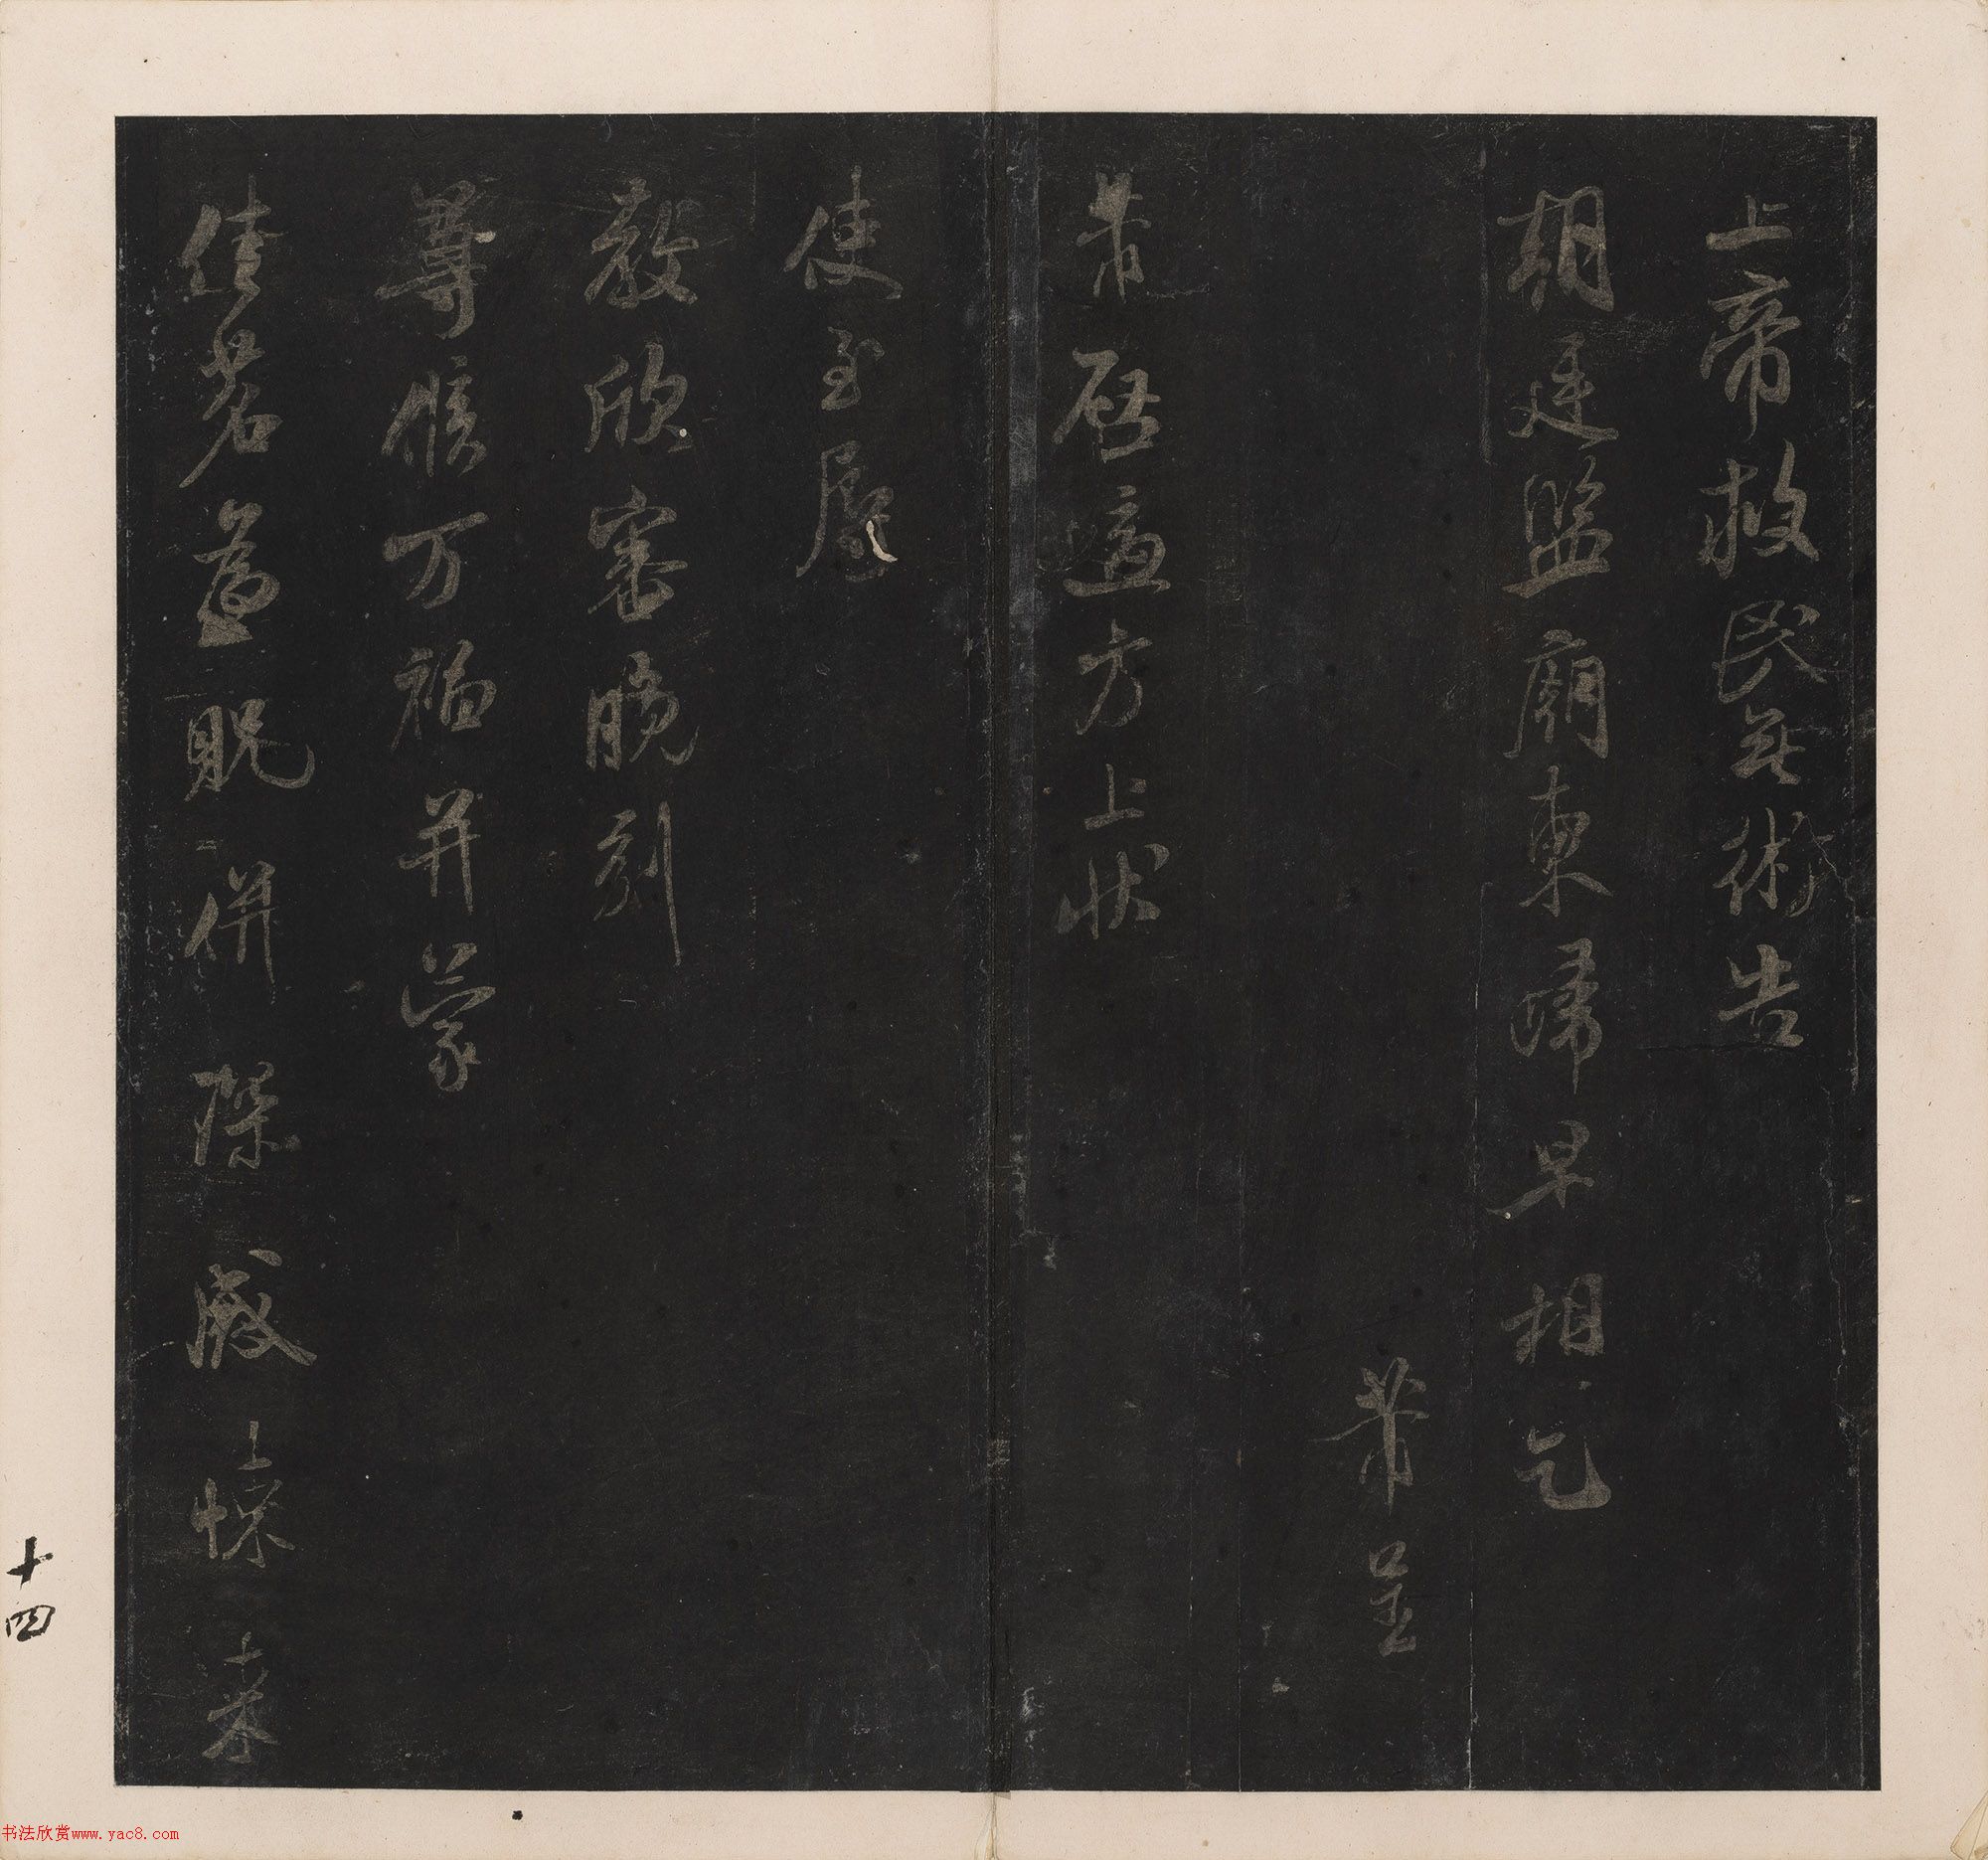 上帝救民無術告
朝廷監廟東歸早相乞
芾呈
芾啓適方上狀
使至辱
教欣審晚刻
尊候万福并蒙
佳茗爲貺併深感上懷來
十四
书法欣赏www.yac8.com